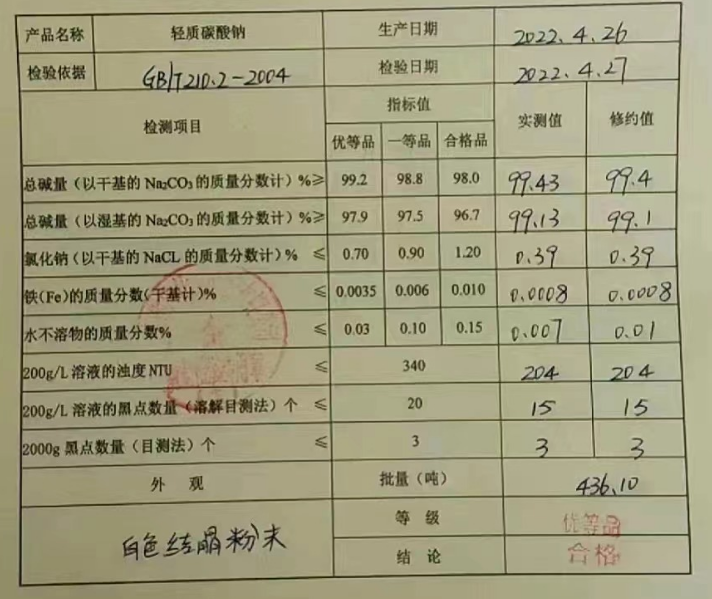 产品名称 轻质碳酸钠 生产日期 2022.4.26
检验依据 GB/T210.2-2004 检验日期 2022.4.27
检测项目 指标值 实测值 修约值
优等品 一等品 合格品
总碱量（以干基的 Na₂CO₃的质量分数计）%≥ 99.2 98.8 98.0 99.43 99.4
总碱量（以湿基的 Na₂CO₃的质量分数计）%≥ 97.9 97.5 96.7 99.13 99.1
氯化钠（以干基的 NaCL 的质量分数计）% ≤ 0.70 0.90 1.20 0.39 0.39
铁(Fe)的质量分数(干基计)% ≤ 0.0035 0.006 0.010 0.0008 0.0008
水不溶物的质量分数% ≤ 0.03 0.10 0.15 0.007 0.01
200g/L 溶液的浊度 NTU ≤ 340 204 204
200g/L 溶液的黑点数量（溶解目测法）个 ≤ 20 15 15
2000g 黑点数量（目测法）个 ≤ 3 3 3
外 观 批量（吨） 436.10
白色结晶粉末 等 级 优等品
结 论 合格